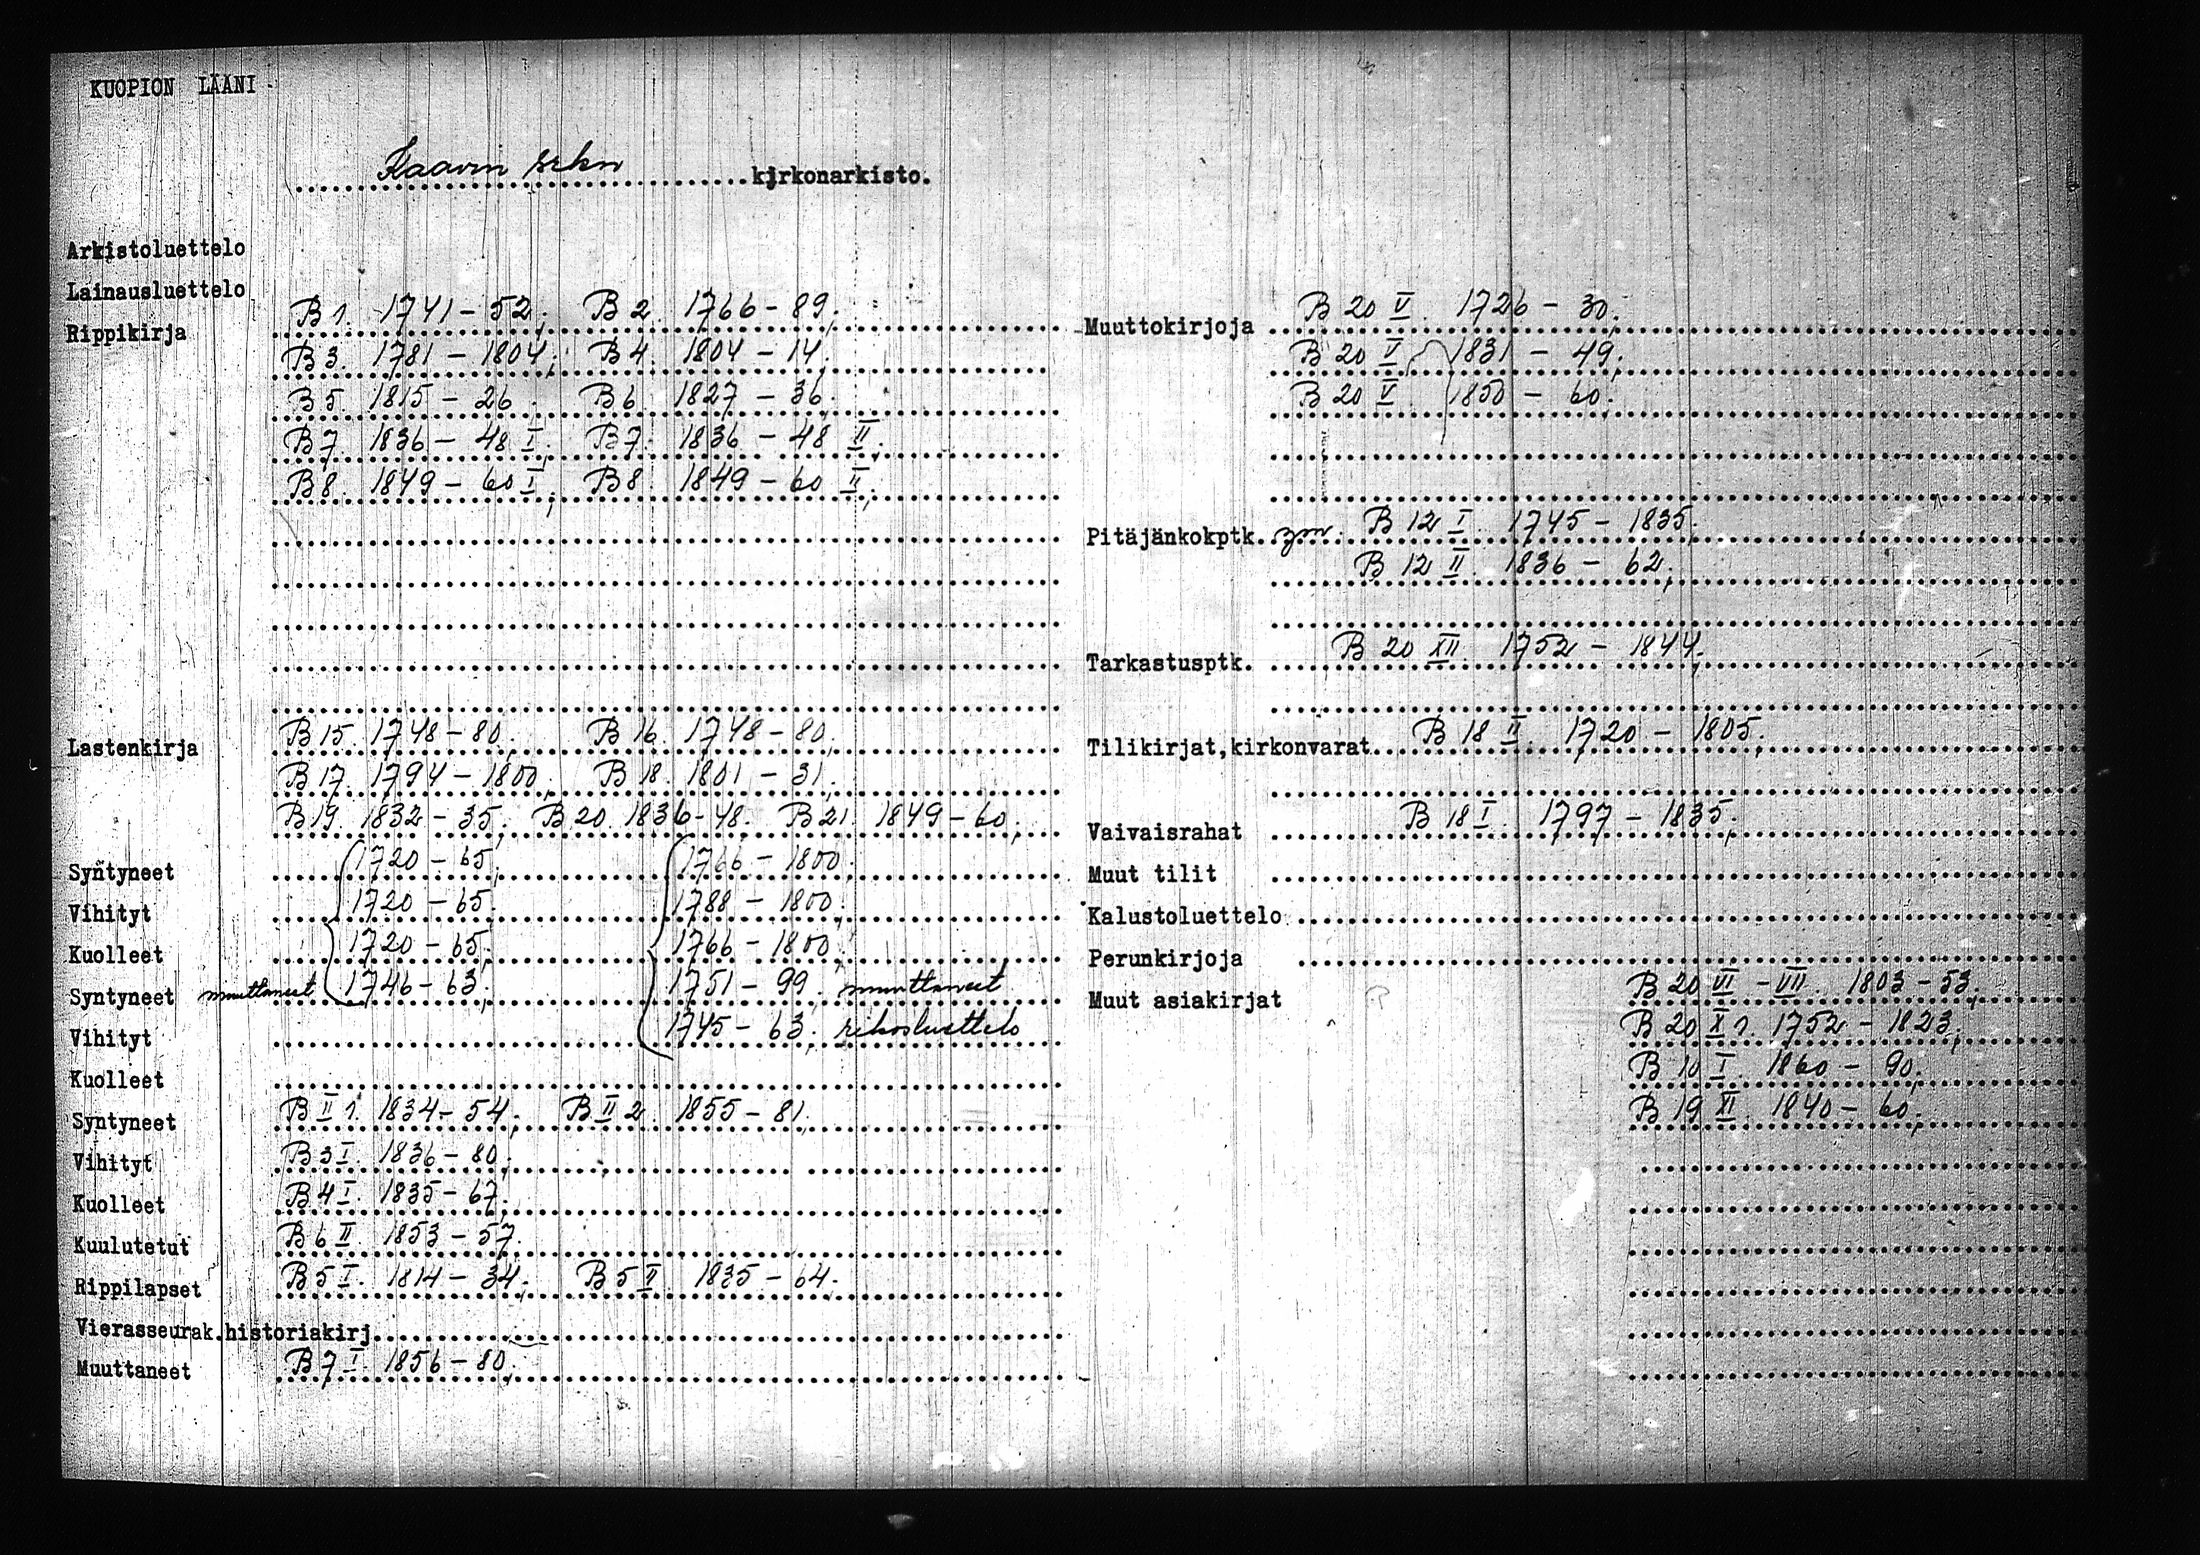 KUOPION LÄÄNI
Kaavin srkn kirkonarkisto.
Arkistoluettelo
Lainausluettelo
Rippikirja B 1. 1741-52; B 2. 1766-89;
B 3. 1781-1804; B 4. 1804-14;
B 5. 1815-26; B 6. 1827-36;
B 7. 1836-48 I; B 7. 1836-48 II;
B 8. 1849-60 I; B 8. 1849-60 II;
Lastenkirja B 15. 1748-80; B 16. 1748-80;
B 17. 1794-1800; B 18. 1801-31;
B 19. 1832-35; B 20. 1836-48. B 21. 1849-60;
Syntyneet 1720-65; 1766-1800;
Vihityt 1720-65; 1788-1800;
Kuolleet 1720-65; 1766-1800;
Syntyneet muuttaneet 1746-63; 1751-99. muuttaneet
Vihityt 1745-63; rikosluettelo
Kuolleet
Syntyneet B II 1. 1834-54; B II 2. 1855-81;
Vihityt B 3 I. 1836-80;
Kuolleet B 4 I. 1835-67;
Kuulutetut B 6 II. 1853-57.
Rippilapset B 5 I. 1814-34; B 5 II. 1835-64.
Vierasseurak.historiakirj.
Muuttaneet B 7 I. 1856-80;
Muuttokirjoja B 20 V. 1726-30;
B 20 V 1831-49;
B 20 V. 1850-60;
Pitäjänkokptk. ym. B 12 I. 1745-1835;
B 12 II. 1836-62;
Tarkastusptk. B 20 XII. 1752-1844;
Tilikirjat,kirkonvarat B 18 II. 1720-1805;
Vaivaisrahat B 18 I. 1797-1835;
Muut tilit
Kalustoluettelo
Perunkirjoja
Muut asiakirjat B 20 VI-VII. 1803-53;
B 20 X 1. 1752-1823;
B 10 I. 1860-90;
B 19 XI. 1840-60;